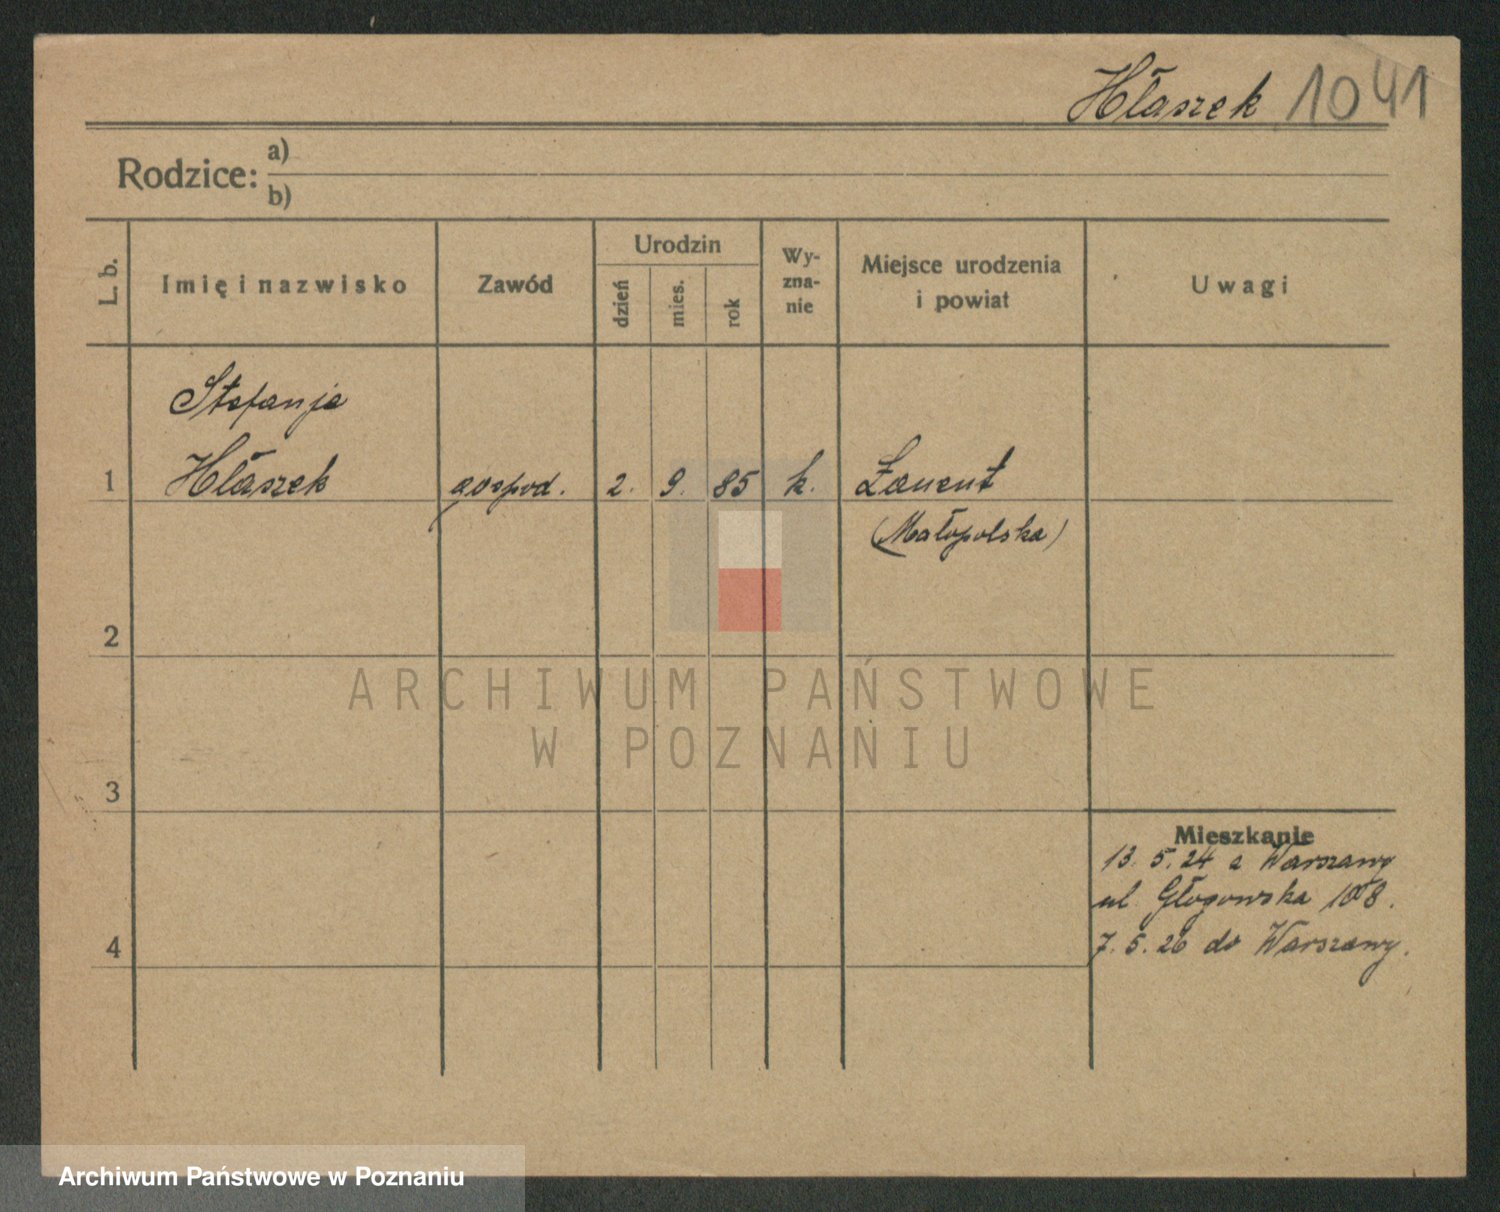 Hłaszek 1041
Rodzice: a)
b)
L. b.
Imię i nazwisko
Zawód
Urodzin
dzień
mies.
rok
Wy-
zna-
nie
Miejsce urodzenia
i powiat
Uwagi
Stefanja
1 Hłaszek gospod. 2. 9. 85 k. Łancut
(Małopolska)
2
3
4
Mieszkanie
13. 5. 24 z Warszawy
ul. Głogowska 108.
7. 5. 26 do Warszawy.
ARCHIWUM PAŃSTWOWE
W POZNANIU
Archiwum Państwowe w Poznaniu